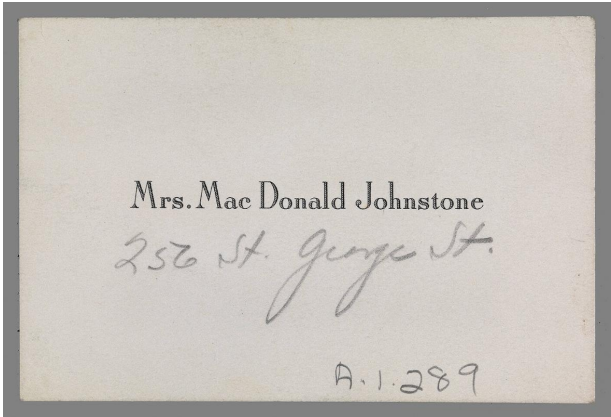 Mrs. Mac Donald Johnstone
256 St. George St.
A.1.289